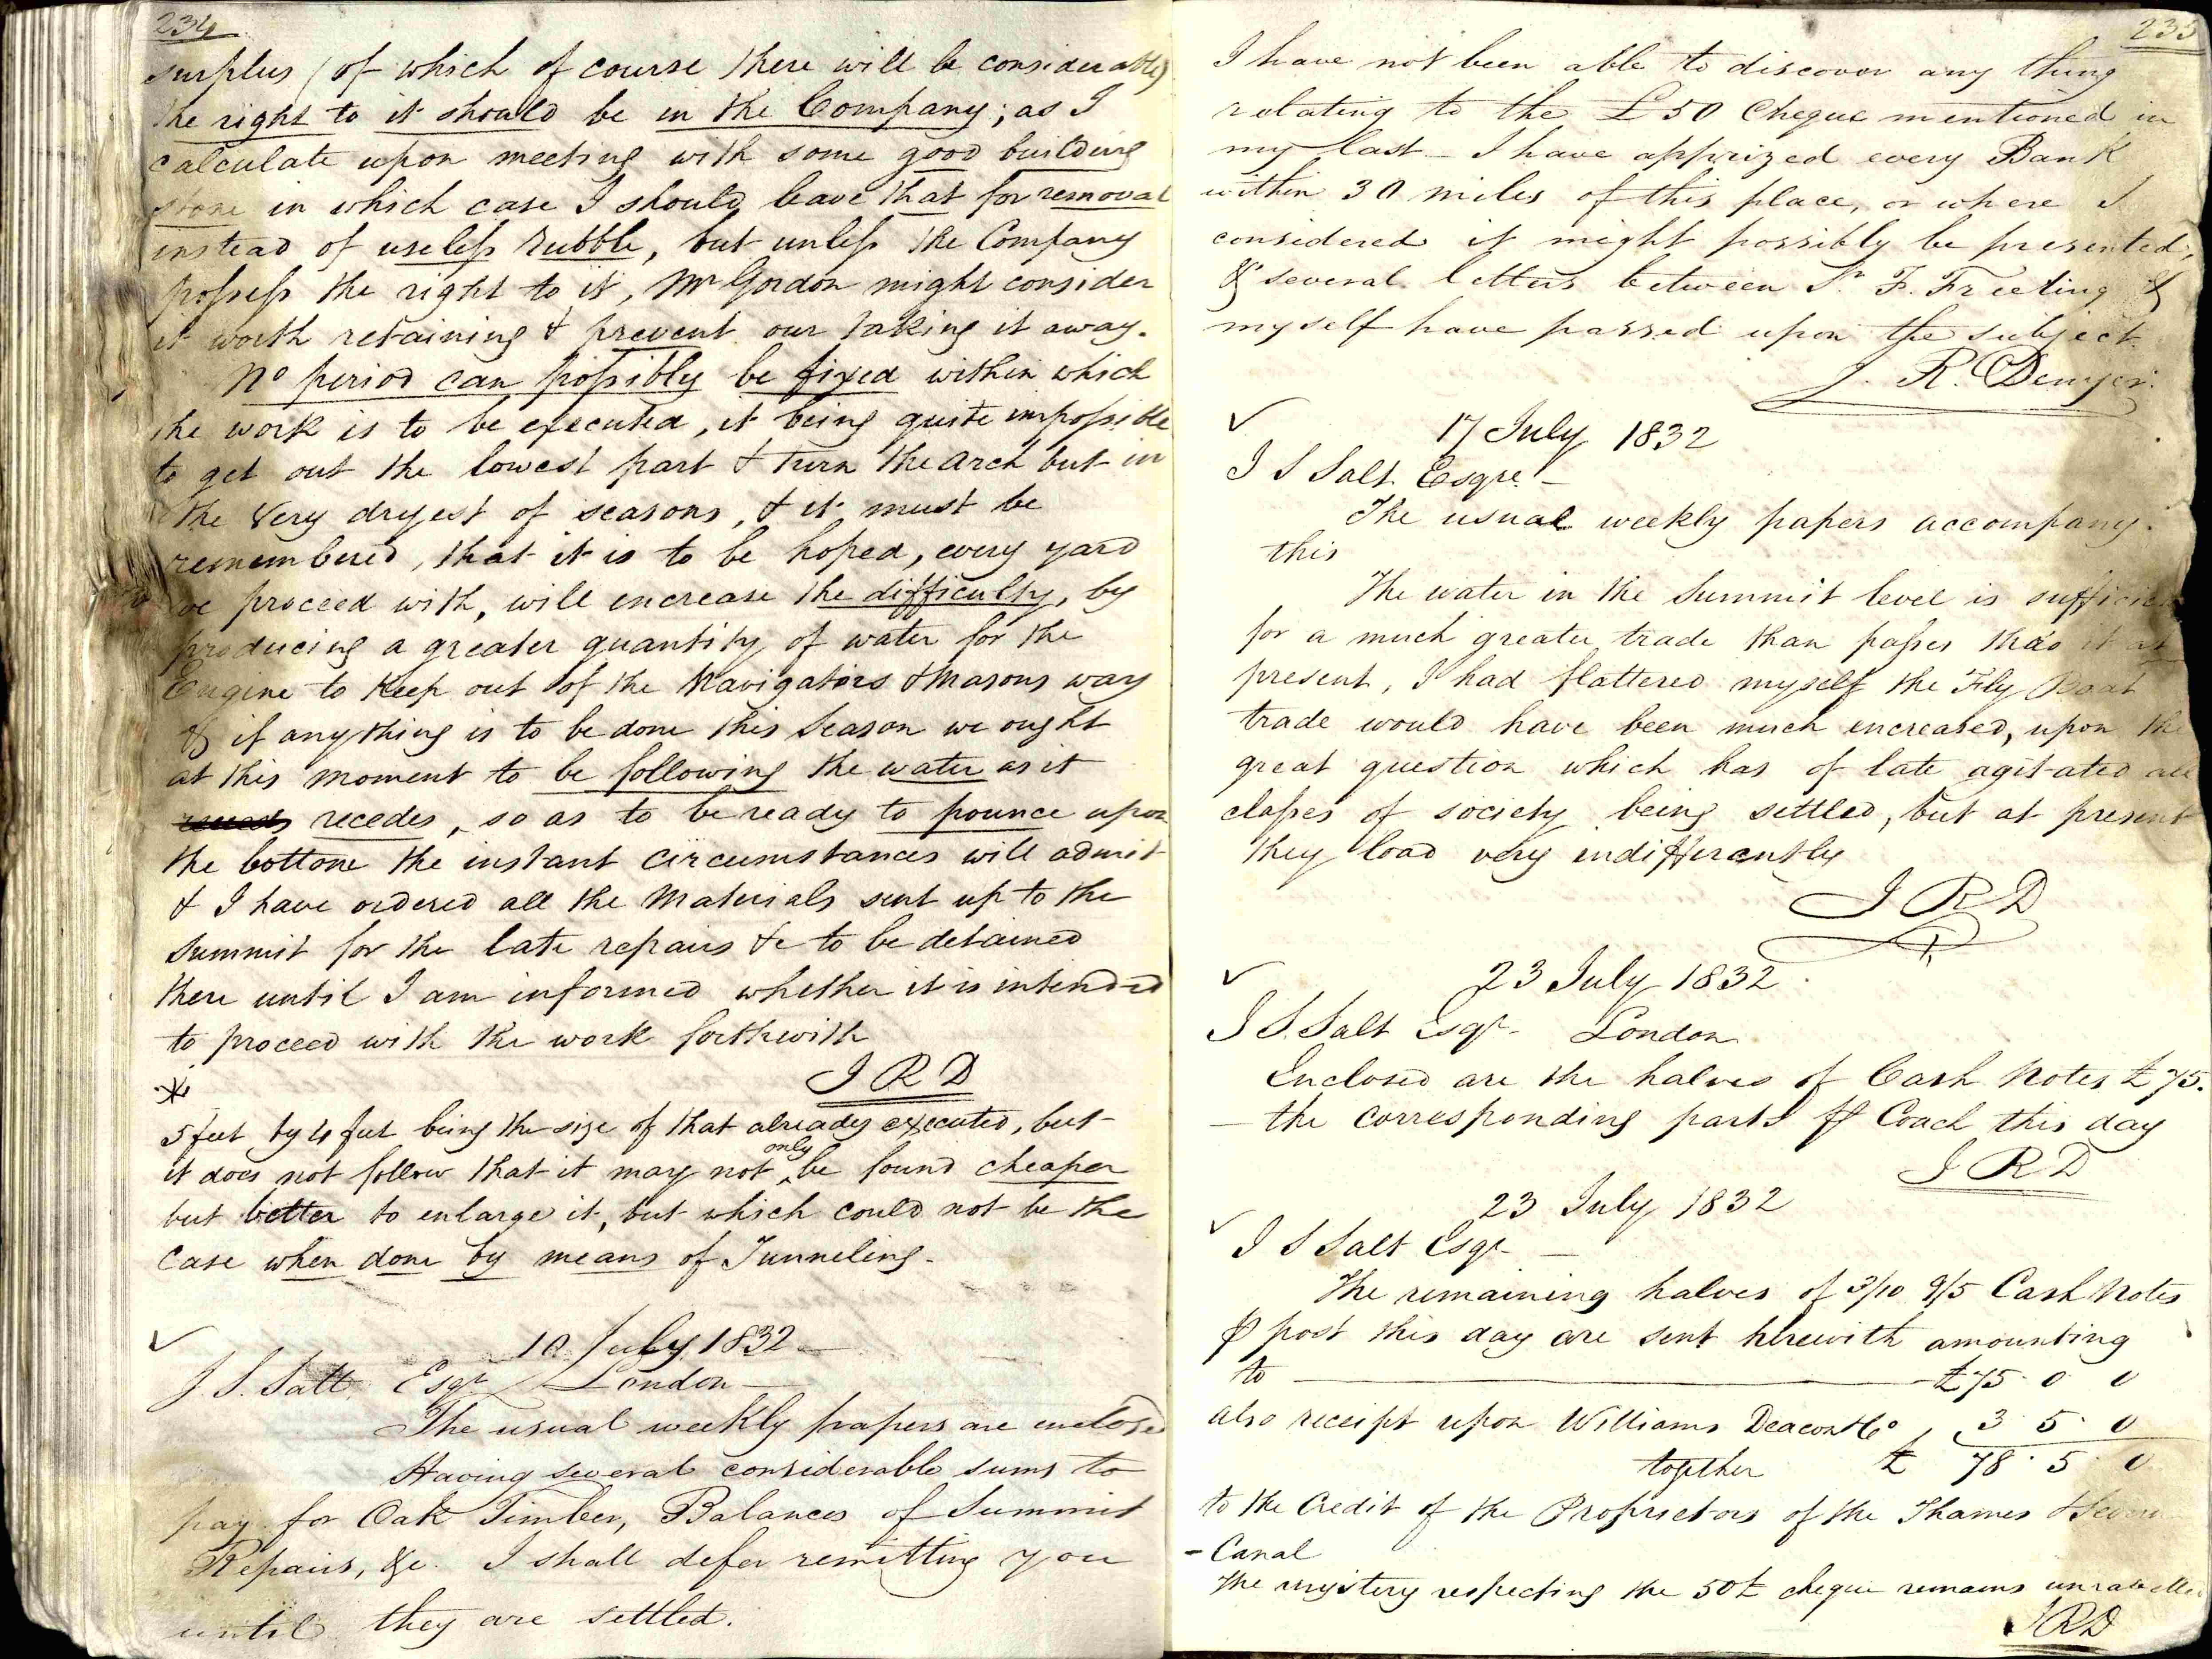 234
surplus (of which of course there will be considerable)
the right to it should be in the Company; as I
calculate upon meeting with some good building
stone in which case I should leave that for removal
instead of useless rubble, but unless the Company
possess the right to it, Mr Gordon might consider
it worth retaining & prevent our taking it away.
No period can possibly be fixed within which
the work is to be executed, it being quite impossible
to get out the lowest part & turn the arch but in
the very dryest of seasons, & it must be
remembered, that it is to be hoped, every yard
we proceed with, will encrease the difficulty, by
producing a greater quantity of water for the
Engine to keep out of the Navigators & Masons way
& if anything is to be done this Season we ought
at this moment to be following the water as it
recedes, so as to be ready to pounce upon
the bottom the instant circumstances will admit
& I have ordered all the Materials sent up to the
Summit for the late repairs &c to be detained
there until I am informed whether it is intended
to proceed with the work forthwith
J R D
*
5 feet by 4 feet being the size of that already executed, but
it does not follow that it may not only be found cheaper
but better to enlarge it, but which could not be the
case when done by means of Tunneling.
10 July 1832
J. S. Salt Esqr London
The usual weekly papers are enclosed
Having several considerable sums to
pay for Oak Timber, Balances of Summit
Repairs, &c. I shall defer remitting you
until they are settled.
235
I have not been able to discover any thing
relating to the £50 Cheque mentioned in
my last – I have apprized every Bank
within 30 miles of this place, or where I
considered it might possibly be presented,
& several letters between Sr. F. Freeling &
myself have passed upon the subject.
J. R. Denyer.
17 July 1832
J S Salt Esqre. –
The usual weekly papers accompany
this
The water in the Summit level is sufficient
for a much greater trade than passes thro it at
present, I had flattered myself the Fly Boat
trade would have been much encreased, upon the
great question which has of late agitated all
classes of society being settled, but at present
they load very indifferently
J R D
23 July 1832
J S Salt Esqr. London
Enclosed are the halves of Cash Notes £75.
– the corresponding parts ⅌ Coach this day
J R D
23 July 1832
J S Salt Esqr –
The remaining halves of 3/10 9/5 Cash Notes
⅌ post this day are sent herewith amounting
to £75 . 0 0
also receipt upon Williams Deacon & Co 3 5 . 0
together £ 78 . 5 0
to the Credit of the Proprietors of the Thames & Severn
- Canal
The mystery respecting the 50£ cheque remains unravelled
JRD